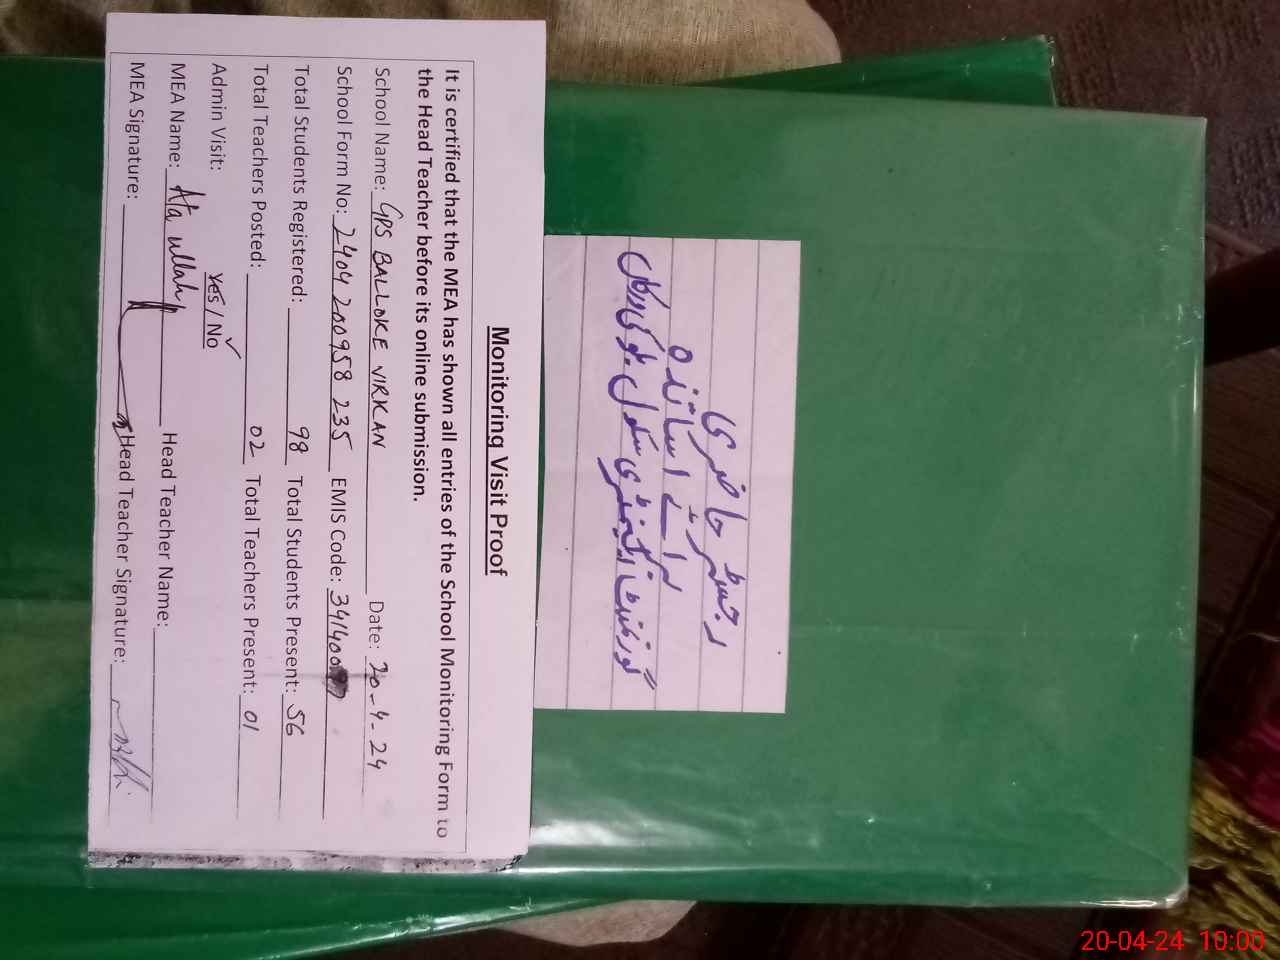 Monitoring Visit Proof
It is certified that the MEA has shown all entries of the School Monitoring Form to
the Head Teacher before its online submission.
School Name: GPS BALLOKE VIRKAN Date: 20-4-24
School Form No: 2404200958 235 EMIS Code: 341400
Total Students Registered: 98 Total Students Present: 56
Total Teachers Posted: 02 Total Teachers Present: 01
Admin Visit: Yes / No ✓
MEA Name: Ata ullah Head Teacher Name:
MEA Signature: Head Teacher Signature:
رجسٹر حاضری
برائے اساتذہ
گورنمنٹ پرائمری سکول بلوکی ورکاں
20-04-24 10:00